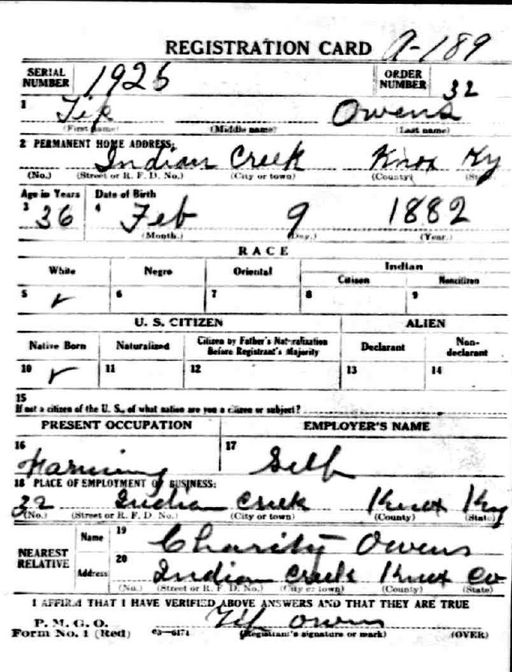 REGISTRATION CARD A-189
SERIAL NUMBER 1925 ORDER NUMBER 32
1 Tip Owens
(First name) (Middle name) (Last name)
2 PERMANENT HOME ADDRESS:
Indian Creek Knox Ky
(No.) (Street or R. F. D. No.) (City or town) (County) (State)
Age in Years Date of Birth
3 36 4 Feb 9 1882
(Month.) (Day.) (Year.)
RACE
White Negro Oriental Indian
Citizen Noncitizen
5 ✓ 6 7 8 9
U. S. CITIZEN ALIEN
Native Born Naturalized Citizen by Father's Naturalization Before Registrant's Majority Declarant Non-declarant
10 ✓ 11 12 13 14
15
If not a citizen of the U. S., of what nation are you a citizen or subject?
PRESENT OCCUPATION EMPLOYER'S NAME
16 Farming 17 Self
18 PLACE OF EMPLOYMENT OF BUSINESS:
32 Indian Creek Knox Ky
(No.) (Street or R. F. D. No.) (City or town) (County) (State)
NEAREST RELATIVE Name 19 Charity Owens
Address 20 Indian Creek Knox Co
(No.) (Street or R. F. D. No.) (City or town) (County) (State)
I AFFIRM THAT I HAVE VERIFIED ABOVE ANSWERS AND THAT THEY ARE TRUE
P. M. G. O.
Form No. 1 (Red) 03-6171 Tip Owens
(Registrant's signature or mark) (OVER)